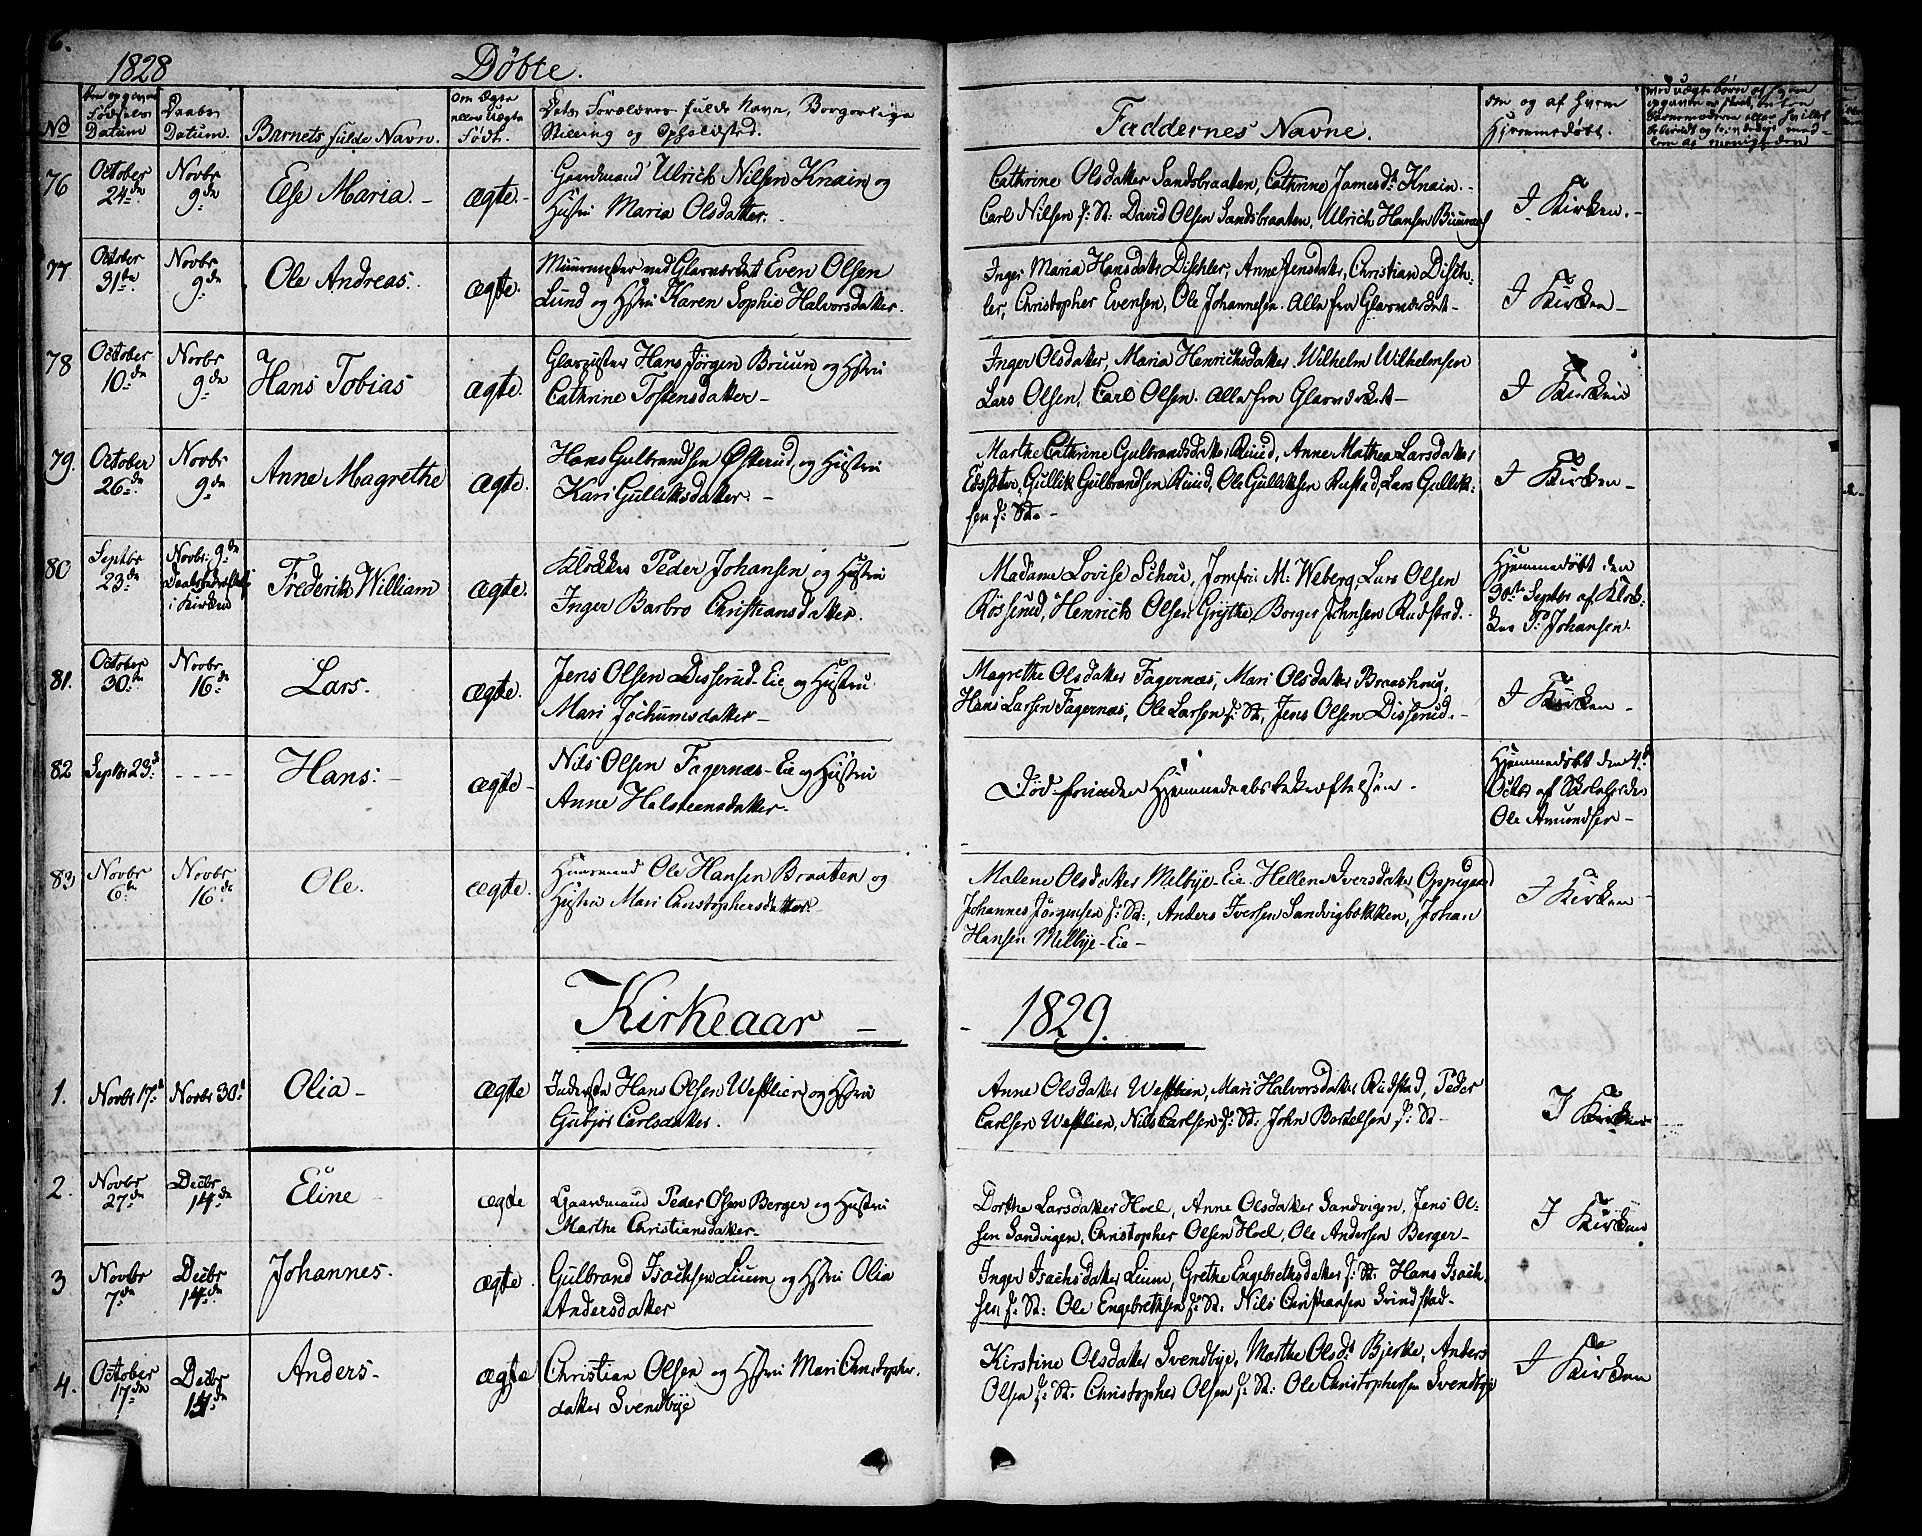 6.
1828 Døbte.
No
Datum
Daabs Datum.
Barnets fulde Navn.
Om Ægte eller Uægte Født.
Forældres fulde Navn, Borgerlige
Stilling og Opholdsted.
Faddernes Navne.
om og af hvem
Hjemmedøbt.
76 October 24de Novbr 9de Else Maria. ægte.
Gaardmand Ulrich Nilsen Knain og
Hustru Maria Olsdatter.
Cathrine Olsdatter Sandsbraaten, Cathrine Jamesd. Knain.
Carl Nilsen s: St: David Olsen Sandsbraaten, Ulrich Hansen
I Kirken.
77 October 31te Novbr 9de Ole Andreas. ægte.
Muurmester ved Glasværket Even Olsen
Lund og Hstru Karen Sophie Halvorsdatter.
Inger Maria Hansdatter Dischler, Anne Jensdatter, Christian Disch-
ler, Christopher Evensen, Ole Johannesen. Alle fra Glasværket
I Kirken
78 October 10de Novbr 9de Hans Tobias ægte.
Glaspuster Hans Jørgen Bruun og Hstru
Cathrine Tostensdatter
Inger Olsdatter, Maria Henrichsdatter, Wilhelm Wilhelmsen
Lars Olsen, Carl Olsen. Alle fra Glasværket
I Kirken
79. October 26de Novbr 9de Anne Magrethe ægte.
Hans Gulbrandsen Østerud og Hustru
Kari Gulliksdatter.
Marthe Cathrine Gulbrandsdatter Ruud, Anne Mathea Larsdatter
Gullik Gulbrandsen Ruud, Ole Gulliksen Rustad, Lars Gullik-
sen s: St.
I Kirken
80 Septbr 23de Novbr: 9de i Kirken Frederik William ægte.
Klokker Peder Johansen og Hustru
Inger Barbro Christiansdatter.
Madame Lovise Schou, Jomfru M: Weberg, Lars Olsen
Røsserud, Henrich Olsen Grytte, Borger Johnsen Rudstad.
Hjemmedøbt den
30te Septbr af Klok-
ker P: Johansen.
81. October 30te Novbr 16de Lars. ægte.
Jens Olsen Disserud-Eie og Hustru
Mari Jochumsdatter
Magrethe Olsdatter Fagernæs, Mari Olsdatter Braashoug,
Hans Larsen Fagernæs, Ole Larsen s: St, Jens Olsen Disserud.
I Kirken
82 Septbr 23de Hans: ægte
Nils Olsen Fagernæs-Eie og Hustru
Anne Halsteensdatter.
Død forinden Hjemmedaabsbekræftelsen.
Hjemmedøbt den 4de
Octbr af Skoleholder
Ole Amundsen
83 Novbr 6te Novbr 16de Ole. ægte.
Huusmand Ole Hansen Braaten og
Hustru Mari Christophersdatter.
Malene Olsdatter Melbye-Eie, Hellene Iversdatter Oppegaard
Johannes Jørgensen s: St:, Anders Iversen Sandvigbækken, Johan
Hansen Melbye-Eie
I Kirken
Kirkeaar 1829.
1. Novbr 17de Novbr 30te Olia ægte
Inderste Hans Olsen Westlien og Hstru
Gubjør Carlsdatter.
Anne Olsdatter Westlien, Mari Halvorsdatter Rudstad, Peder
Carlsen Westlien, Nils Carlsen s: St: John Bertelsen s: St
I Kirken
2. Novbr 27de Decbr 14de Eline ægte
Gaardmand Peder Olsen Berger og Hustru
Marthe Christiansdatter
Dorthe Larsdatter Hoel, Anne Olsdatter Sandvigen, Jens Ol-
sen Sandvigen, Christopher Olsen Hoel, Ole Andersen Berger
I Kirken
3 Novbr 7de Decbr 14de Johannes. ægte.
Gulbrand Isachsen Lium og Hstru Olia
Andersdatter
Inger Isachsdatter Lium, Grethe Engebrethsdatter s: St: Hans Isach-
sen s: St: Ole Engebrethsen s: St: Nils Christiansen Svindstad
4. October 17de Decbr 14de Anders ægte
Christian Olsen og Hstru Mari Christopher-
datter Svendbye
Kirstine Olsdatter Svendbye, Marthe Olsd. Bjerke, Anders
Olsen s: St: Christopher Olsen s: St: Ole Christophersen Svendbye
I Kirken